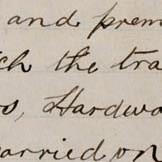 and prem
ch the tra
s, Hardwa
arried on